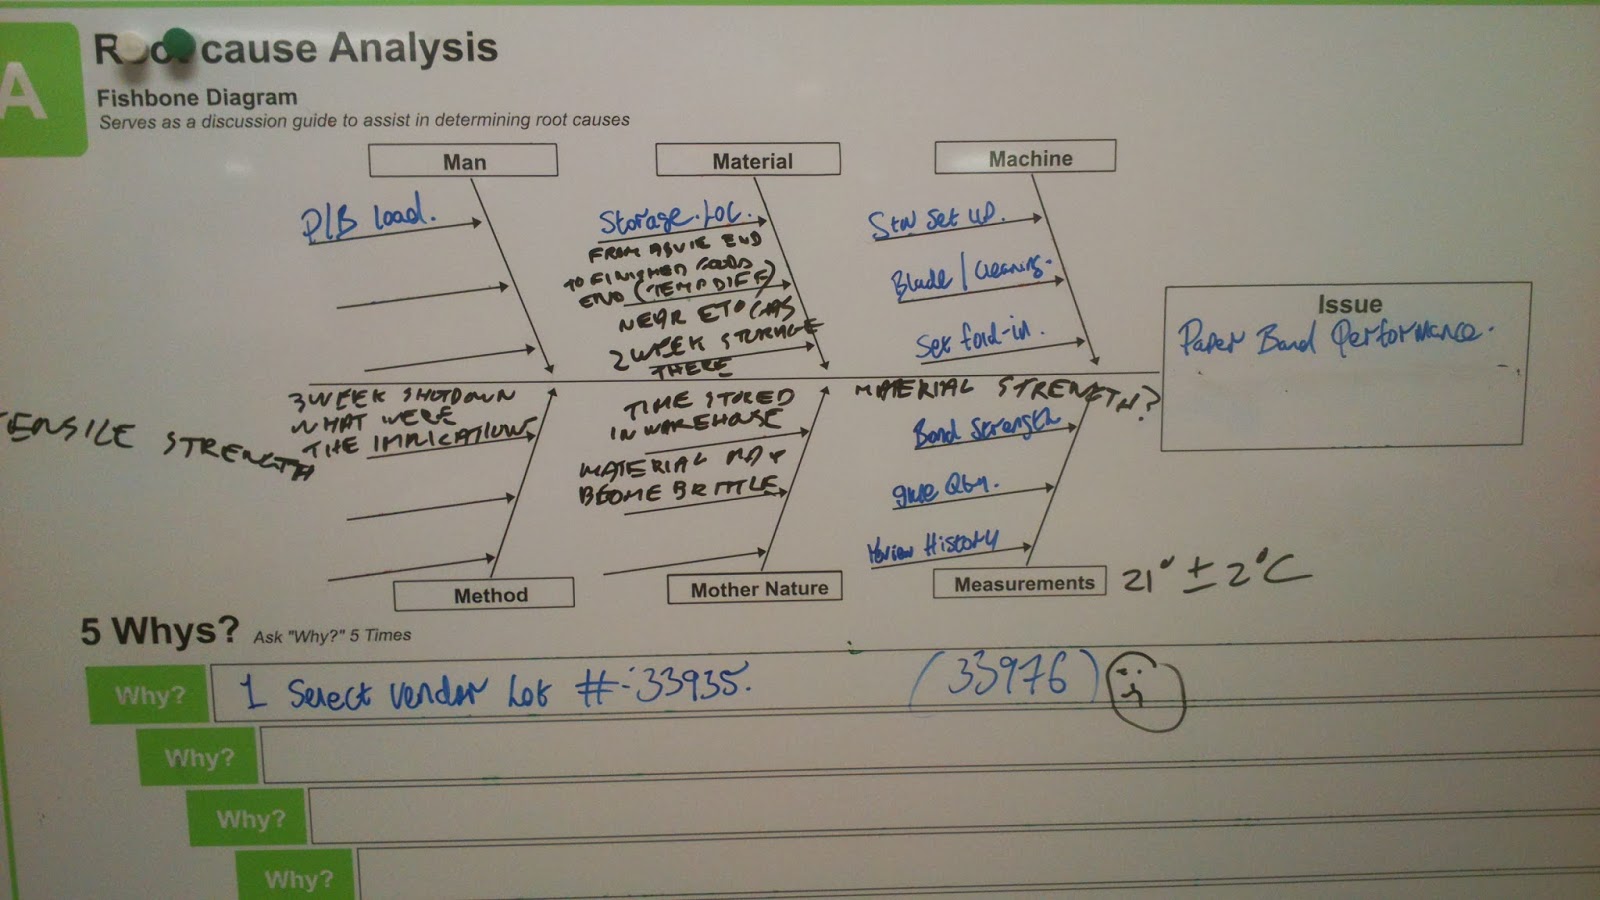 A
Root cause Analysis
Fishbone Diagram
Serves as a discussion guide to assist in determining root causes
Man
Material
Machine
P/B load.
Storage. Loc.
FROM END
TO FINISHED GOODS
END (TEMP DIFF)
NEAR ETO GAS
2 WEEK STORAGE
THERE
Stn Set up.
Blade / Cleaning.
Set fold-in.
Issue
Paper Band Performance.
TENSILE STRENGTH
3 WEEK SHUTDOWN
WHAT WERE
THE IMPLICATIONS
TIME STORED
IN WAREHOUSE
MATERIAL MAY
BECOME BRITTLE
MATERIAL STRENGTH?
Band Strength
glue Qty.
Review History
Method
Mother Nature
Measurements
21° ± 2°C
5 Whys?
Ask "Why?" 5 Times
Why?
1 Select vendor Lot #: 33935.
(33976)
Why?
Why?
Why?